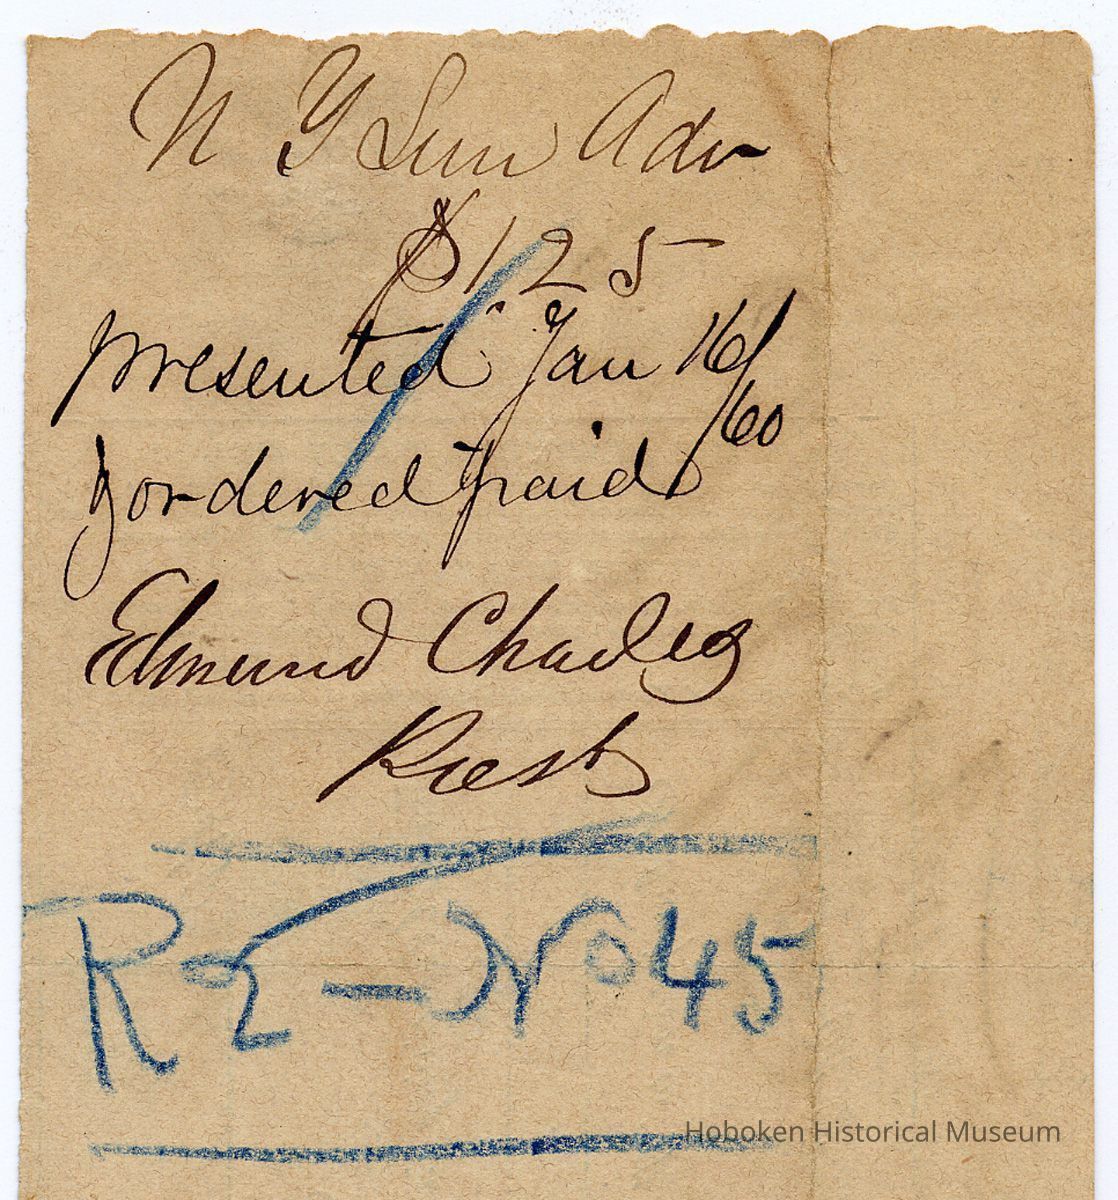 N Y Sun Adv
$1 25
presented Jan 16/
/60
& ordered paid
Edmund Charles
Prest
R - No 45
Hoboken Historical Museum